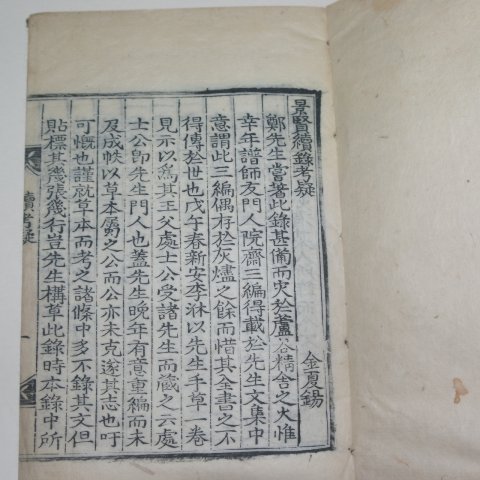 景賢續錄考疑
金夏錫
鄭先生嘗著此錄甚備而灾於蘆谷精舍之火惟
年譜師友門人院齋三編得載於先生文集中
意謂此三編偶存於灰燼之餘而惜其全書之不
得傳於世也戊午春新安李淋以先生手草一卷
見示以爲其王父處士公受諸先生而藏之云處
士公卽先生門人也蓋先生晩年有意重編而未
及成帙以草本屬之公而公亦未克遂其志也吁
可慨也謹就草本而考之諸條中多不錄其文但
貼標其幾張幾行豈先生構草此錄時本錄中所
續考疑